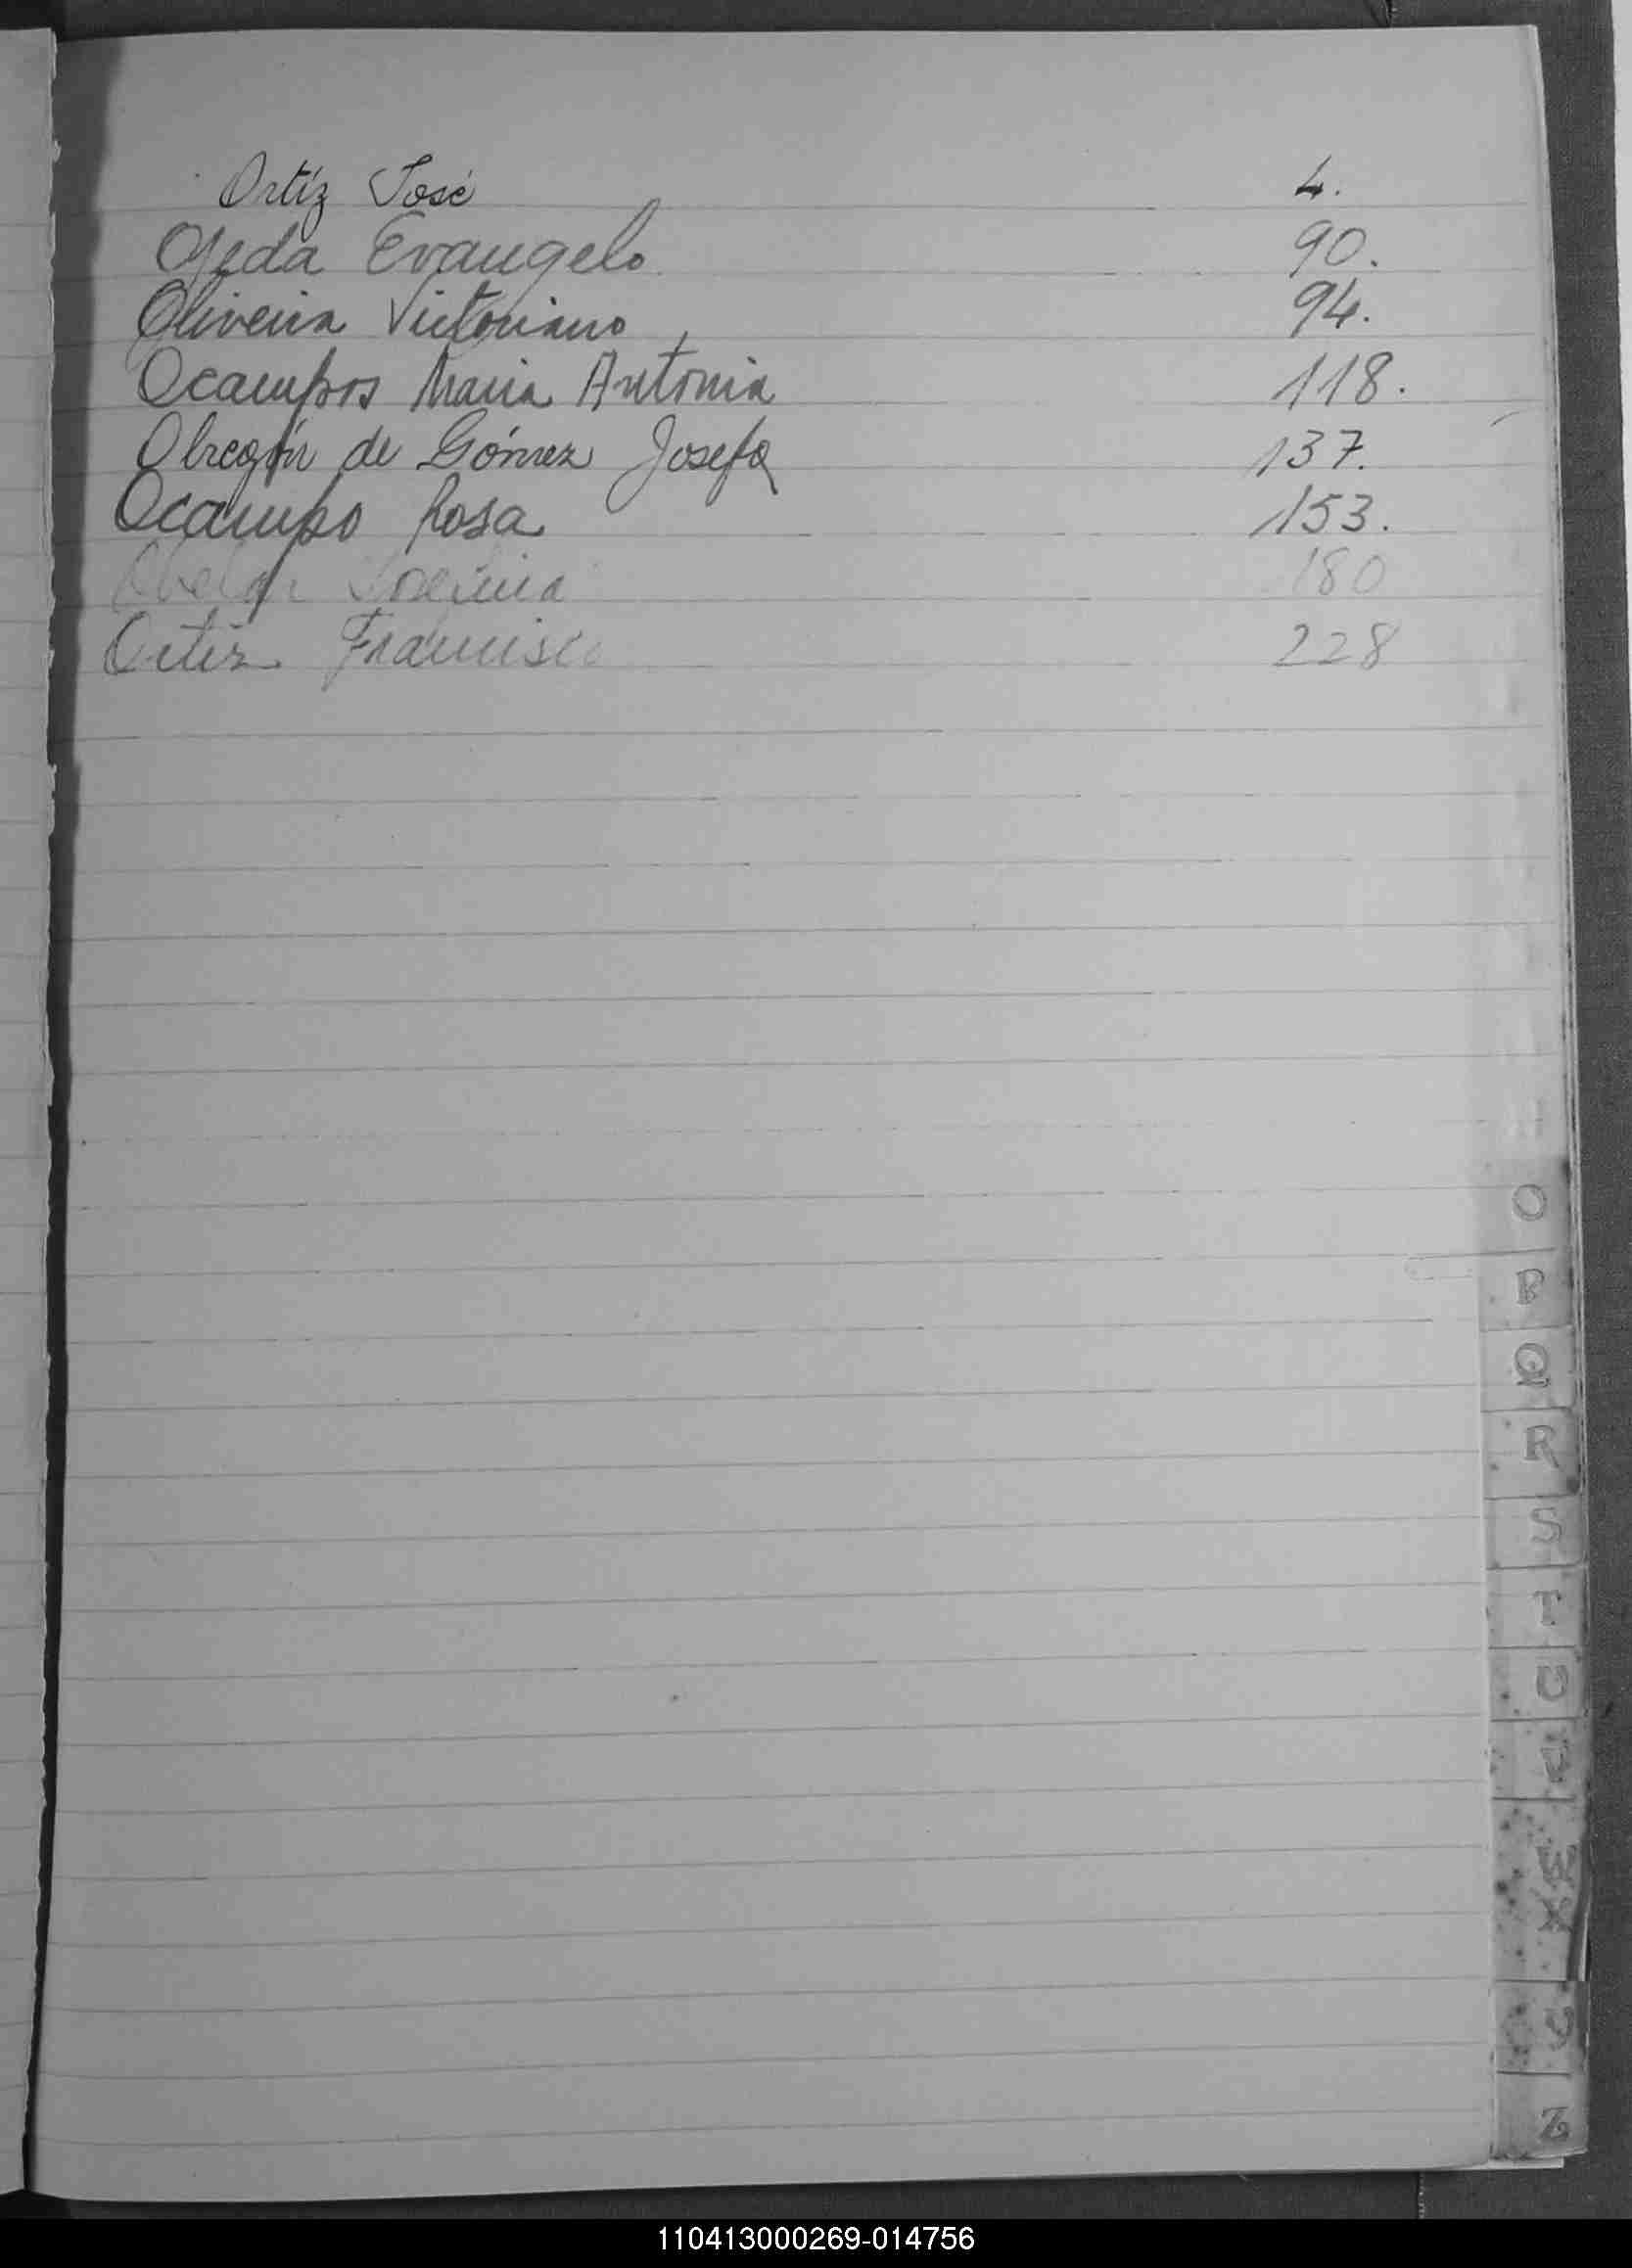 Ortíz José 4.
Ojeda Evangelo 90.
Oliveira Victoriano 94.
Ocampos Maria Antonia 118.
Obregón de Gómez Josefa 137.
Ocampo Rosa 153.
180
Ortiz Francisco 228
O
P
Q
R
S
T
U
V
W
X
Y
Z
110413000269-014756